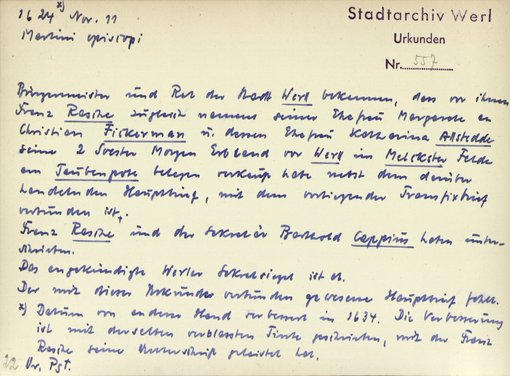 1624 x) Nov. 11
Martini episcopi
Stadtarchiv Werl
Urkunden
Nr. 557
Bürgermeister und Rat der Stadt Werl bekennen, dass vor ihnen
Franz Rasche zugleich namens seiner Ehefrau Margarete an
Christian Fickerman u. dessen Ehefrau Katharina Allstedde
seine 2 Soester Morgen Erbland vor Werl im Melckster Felde
am Taubenpote belegen verkauft habe nebst dem darüber
handelnden Hauptbrief, mit dem vorliegender Transfixbrief
verbunden ist.
Franz Rasche und der Sekretär Barthold Cappius haben unter-
schrieben.
Das angekündigte Werler Sekretsiegel ist ab.
Der mit dieser Urkunde verbunden gewesene Hauptbrief fehlt.
x) Datum von anderer Hand verbessert in 1634. Die Verbesserung
ist mit derselben verblassten Tinte geschrieben, mit der Franz
Rasche seine Unterschrift geleistet hat.
22 Ur. Pgt.